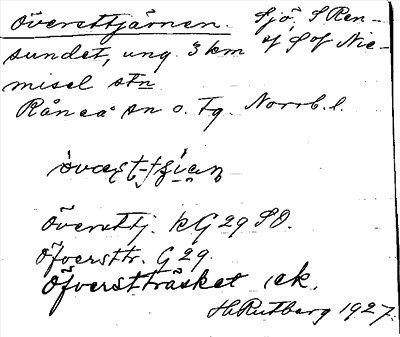 Översttjärnen. Sjö S Ren-
sundet, ung. 3 km nf S of Nie-
misel stn
Råneå sn o. Tg. Norrb. l.
Översttj. kG 29 SO.
Öfversttr. G 29.
Öfverstträsket ek.
H. Rutberg 1927